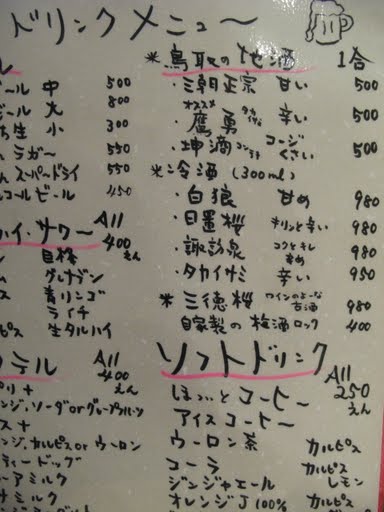 ドリンクメニュー
ル
ール 中 500
ビール 大 800
ち生 小 300
ん ラガー 550
ん スーパードライ 550
ルコールビール 450
カイ・サワー All 400えん
ム 巨峰
ム グレナデン
青リンゴ
ライチ
ルピス 生タルハイ
クテル All 400えん
プリ+
ンジ,ソーダ or グレープフルーツ
ス+
ンジ,カルピス or ウーロン
ティードッグ
ーアミルク
サミルク
*鳥取の地酒 1合
・三朝正宗 甘い 500
オススメ
・鷹勇 タカイサミ 辛い 500
・坤滴 コンテキ コージくさい 500
*冷酒 (300ml)
・白狼 甘め 980
・日置桜 キリンと辛い 980
・諏訪泉 コクとキレ 980
・タカイサミ 辛い 950
*三徳桜 ワインのような古酒 980
自家製の梅酒ロック 400
ソフトドリンク All 250えん
ほっとコーヒー
アイスコーヒー
ウーロン茶 カルピス
コーラ カルピスレモン
ジンジャエール
オレンジJ 100% カルピス